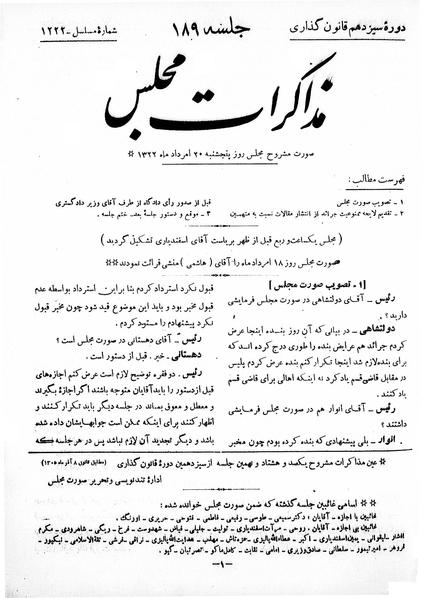 دورهٔ سیزدهم قانون گذاری
جلسه ۱۸۹
شمارهٔ مسلسل - ۱۲۲۲
مذاکرات مجلس
صورت مشروح مجلس روز پنجشنبه ۲۰ امرداد ماه ۱۳۲۲ *
فهرست مطالب :
۱ - تصویب صورت مجلس
۲ - تقدیم لایحه ممنوعیت جرائد از انتشار مقالات نسبت به متهمین
قبل از صدور رأی دادگاه از طرف آقای وزیر دادگستری
۳ - موقع و دستور جلسهٔ بعد، ختم جلسه .
( مجلس یکساعت و ربع قبل از ظهر بریاست آقای اسفندیاری تشکیل گردید )
صورت مجلس روز ۱۸ امرداد ماه را آقای ( هاشمی ) منشی قرائت نمودند **
[ ۱ - تصویب صورت مجلس ]
رئیس - آقای دولتشاهی در صورت مجلس فرمایشی
دارید ؟ .
دولتشاهی - در بیانی که آن روز بنده اینجا عرض
کردم جرائد هم عرایض بنده را طوری درج کرده اند که
برای بنده لازم شد اینجا تکرار کنم بنده عرض کردم پلیس
در مقابل قاضی قسم یاد کرد نه اینکه اهالی برای قاضی قسم
یاد کنند .
رئیس - آقای انوار هم در صورت مجلس فرمایشی
داشتند ؟
انوار - بلی پیشنهادی که بنده کرده بودم چون مخبر
قبول نکرد استرداد کردم بنا بر این استرداد بواسطه عدم
قبول مخبر بود و باید این موضوع قید شود چون مخبر قبول
نکرد پیشنهادم را مسترد کردم .
رئیس - آقای دهستانی در صورت مجلس است ؟
دهستانی - خیر . قبل از دستور است .
رئیس - دو فقره توضیح لازم است عرض کنم اجازه‌های
قبل از دستور را باید آقایان متوجه باشند اگر اجازه بگیرند
و معطل و معوق بماند در جلسه دیگر باید تکرار کنند و
اظهار کنند برای اینکه ممکن است جوابهایشان داده شده
باشد و دیگر تجدید آن لازم نباشد پس در هر جلسه که
* عین مذاکرات مشروح یکصد و هشتاد و نهمین جلسه از سیزدهمین دورهٔ قانون گذاری (مطابق قانون ۸ آذر ماه ۱۳۰۵)
ادارهٔ تندنویسی و تحریر صورت مجلس
** اسامی غائبین جلسه گذشته که ضمن صورت مجلس خوانده شده :
غائبین با اجازه - آقایان : دکتر سمیعی - طوسی - وثیقی - فاطمی - فتوحی - حریری - اورنگ .
غائبین بی اجازه - آقایان : روحی - مهرآت اسفندیاری - تولیت - جلیلی - فیاض - شهدوست - فرخ - ریگی - شاهرودی - مکرم
افشار - لیقوانی - یمین اسفندیاری - اکبر - عطاءالله پالیزی - حمزه تاش - مهذب - هدایت الله پالیزی - نراقی - فرشی - ثقة الاسلامی - نیکپور -
فروهر - امیر تیمور - سلطانی - صادق وزیری - امامی - نقابت - کامل ماکو - نصرتیان - گیو .
-۱-